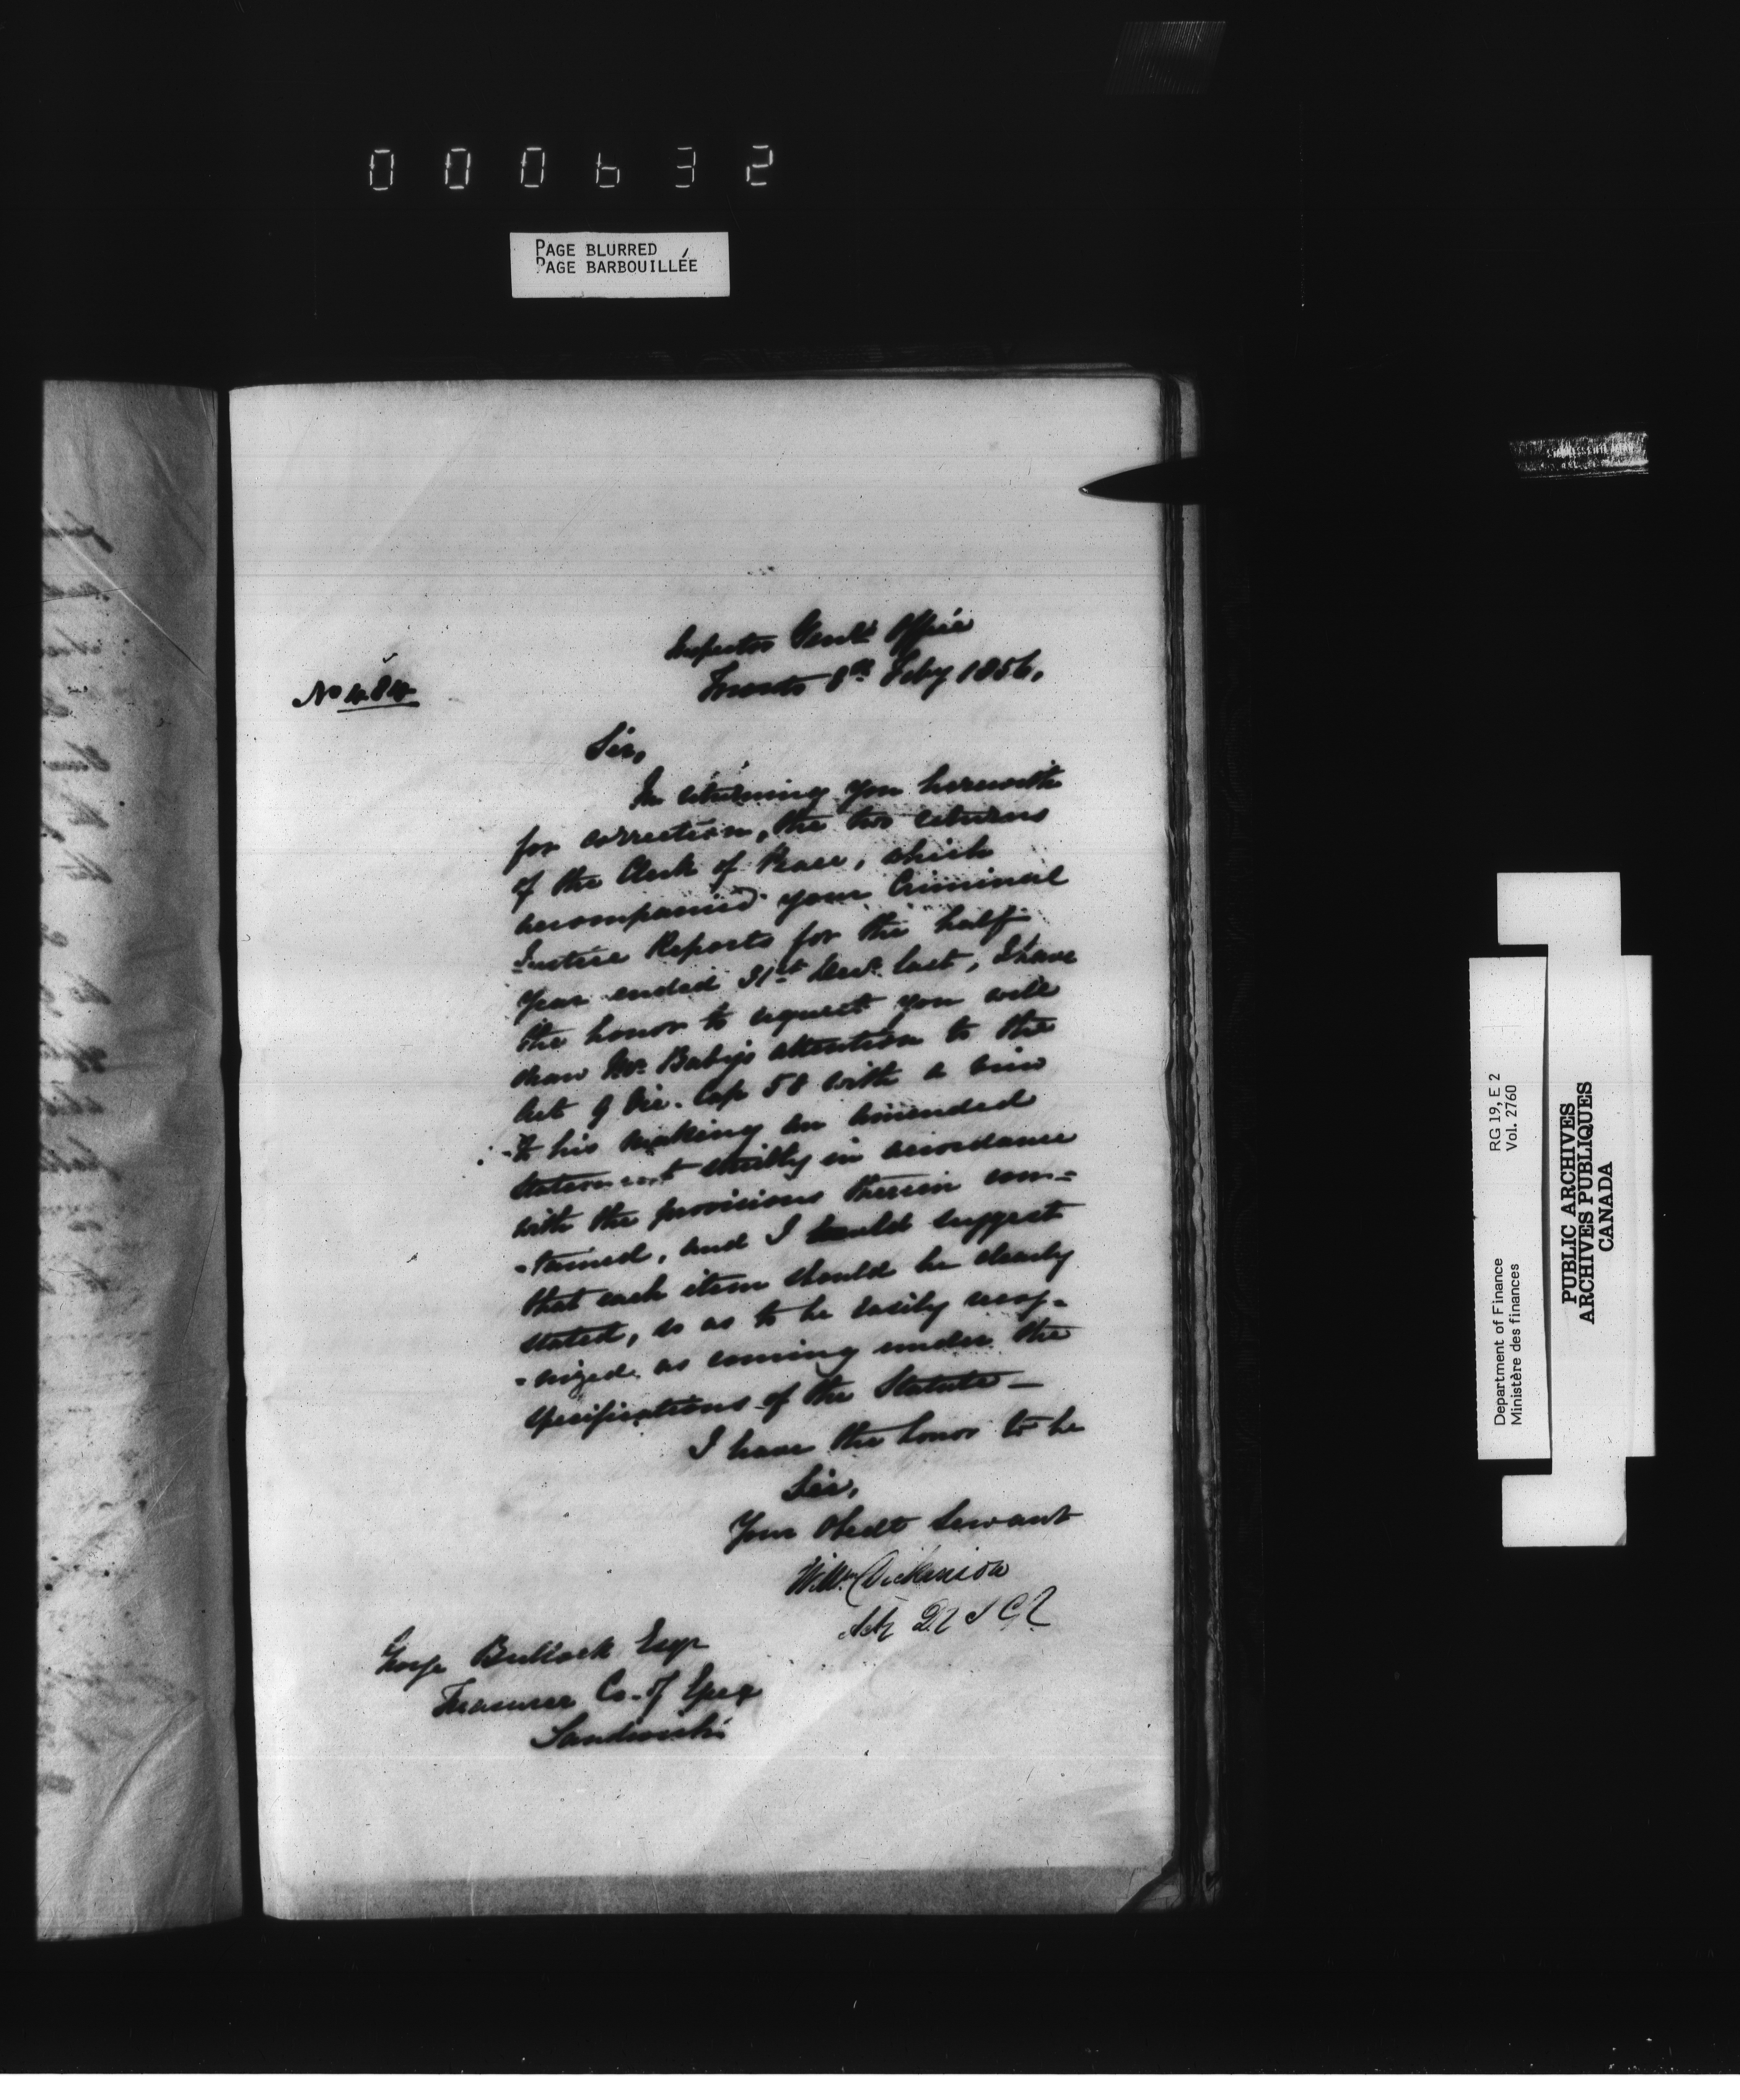 000632
PAGE BLURRED
PAGE BARBOUILLÉE
Inspector Genls Office
Toronto 8th Feby 1856.
No 484
Sir,
In returning you herewith
for correction, the two returns
of the Clerk of Peace, which
accompanied your Criminal
Justice Reports for the half
Year ended 31st Decr. last, I have
the honor to request you will
draw Mr. Baby's attention to the
Act 9 Vic. Cap 58 with a view
to his making an amended
statement strictly in accordance
with the provisions therein con=
-tained, and I would suggest
that each item should be clearly
stated, so as to be easily recog-
-nized as coming under the
specifications of the Statute —
I have the honor to be
Sir,
Your Obedt Servant
Willm Dickinson
George Bullock Esqr
Treasurer Co. of Essex
Sandwich
RG 19, E 2
Vol. 2760
Department of Finance
Ministère des finances
PUBLIC ARCHIVES
ARCHIVES PUBLIQUES
CANADA